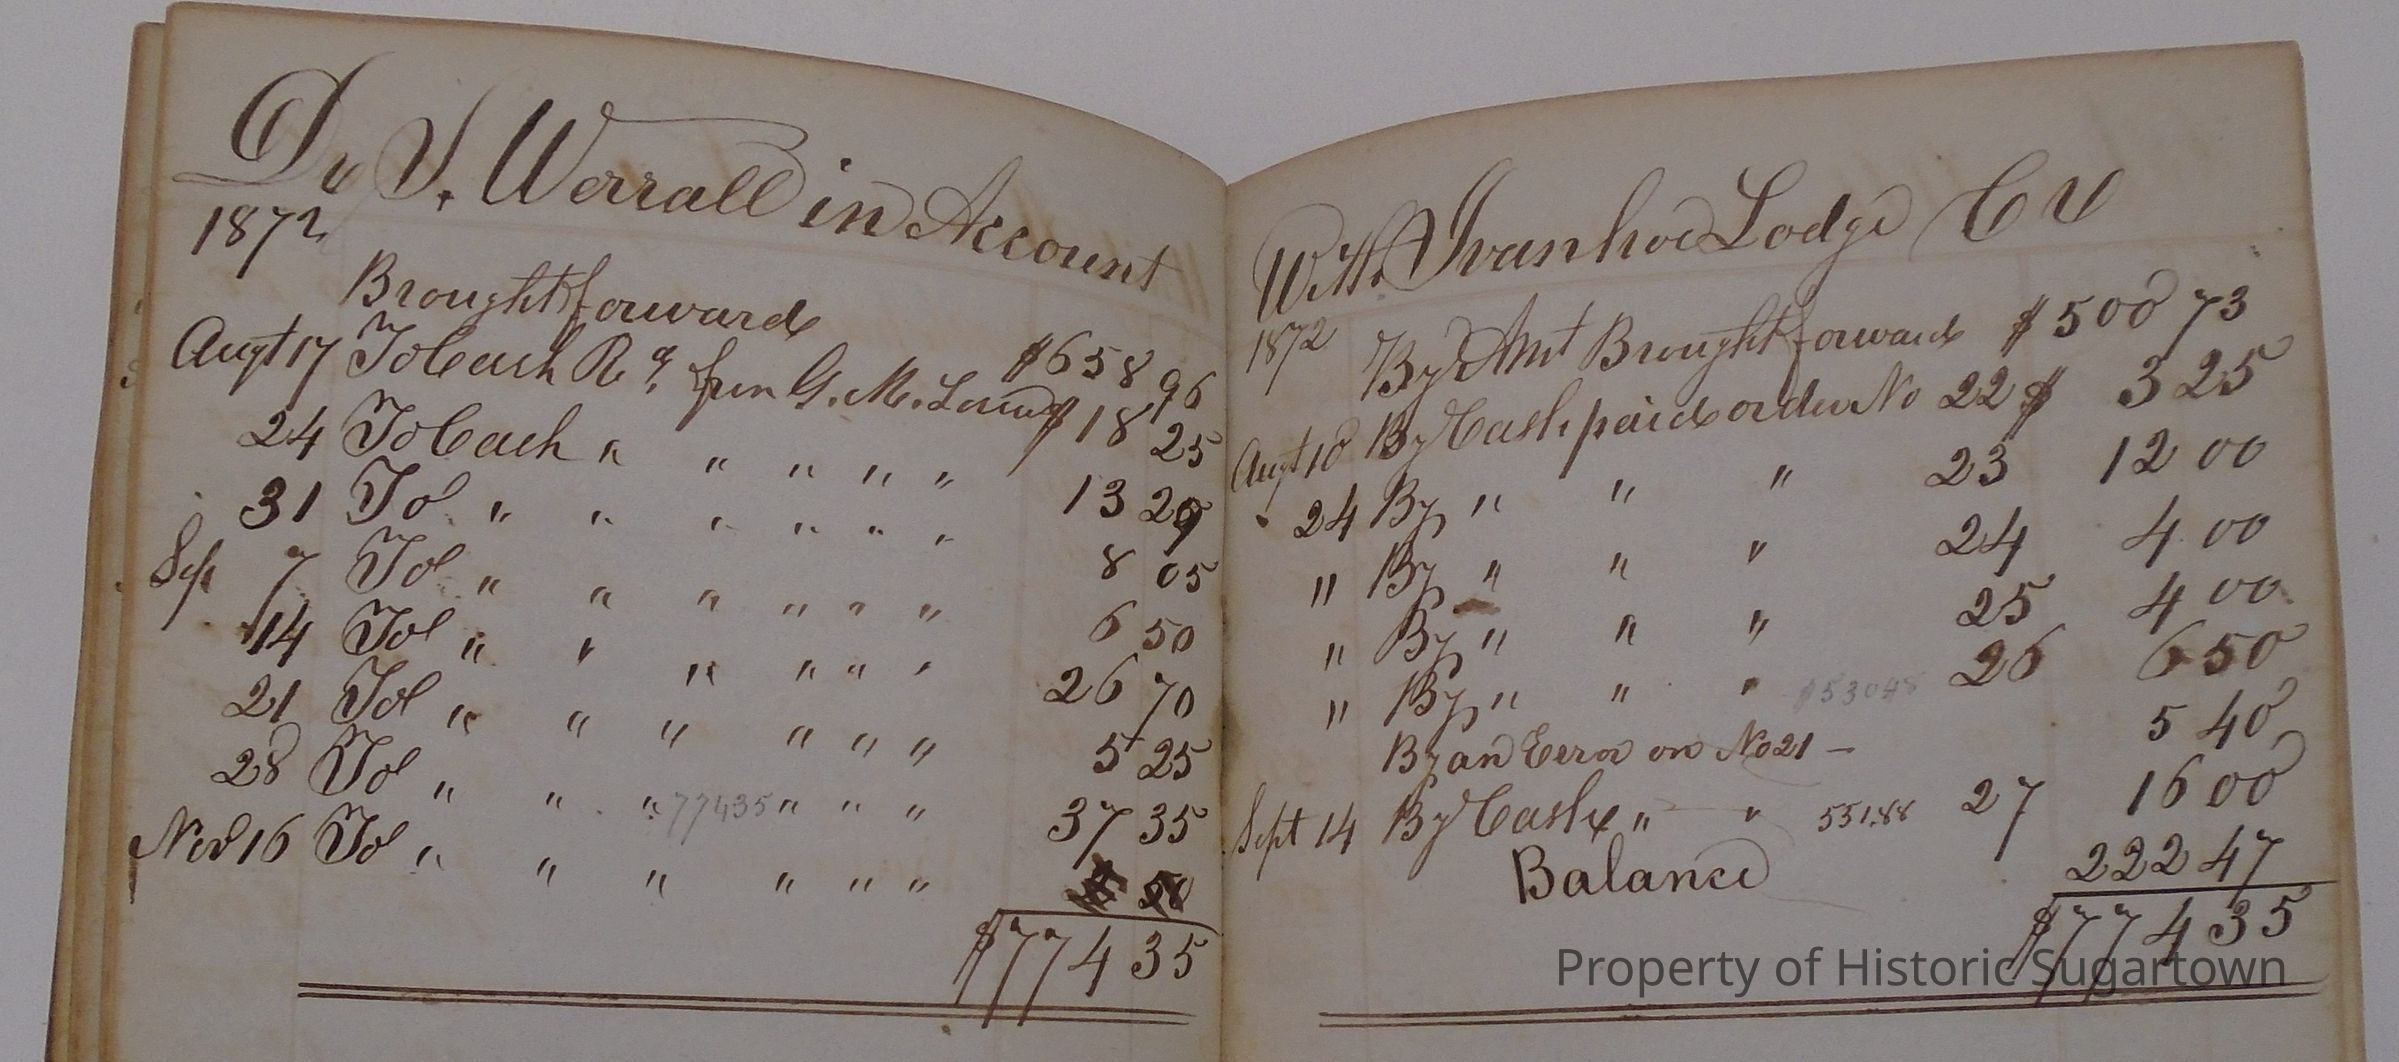 Dr S. Worrall in Account
1872
Brought forward $658 96
Augt 17 To Cash Rd from G. M. $18 25
24 To Cash " " " " " 13 29
31 To " " " " " " 8 05
Sep 7 To " " " " " " 6 50
14 To " " " " " " 26 70
21 To " " " " " " 5 25
28 To " " " 77435 " " " 37 35
Nov 16 To " " " " " "
$774 35
With Ivanhoe Lodge Cr
1872 By Amt Brought forward $500 73
Augt 10 By Cash paid order No 22 $ 3 25
24 By " " " 23 12 00
" By " " " 24 4 00
" By " " " 25 4 00
" By " " " $53048 26 6 50
By an Error on No 21 – 5 40
Sept 14 By Cash " " 551.88 27 16 00
Balance 222 47
$774 35
Property of Historic Sugartown